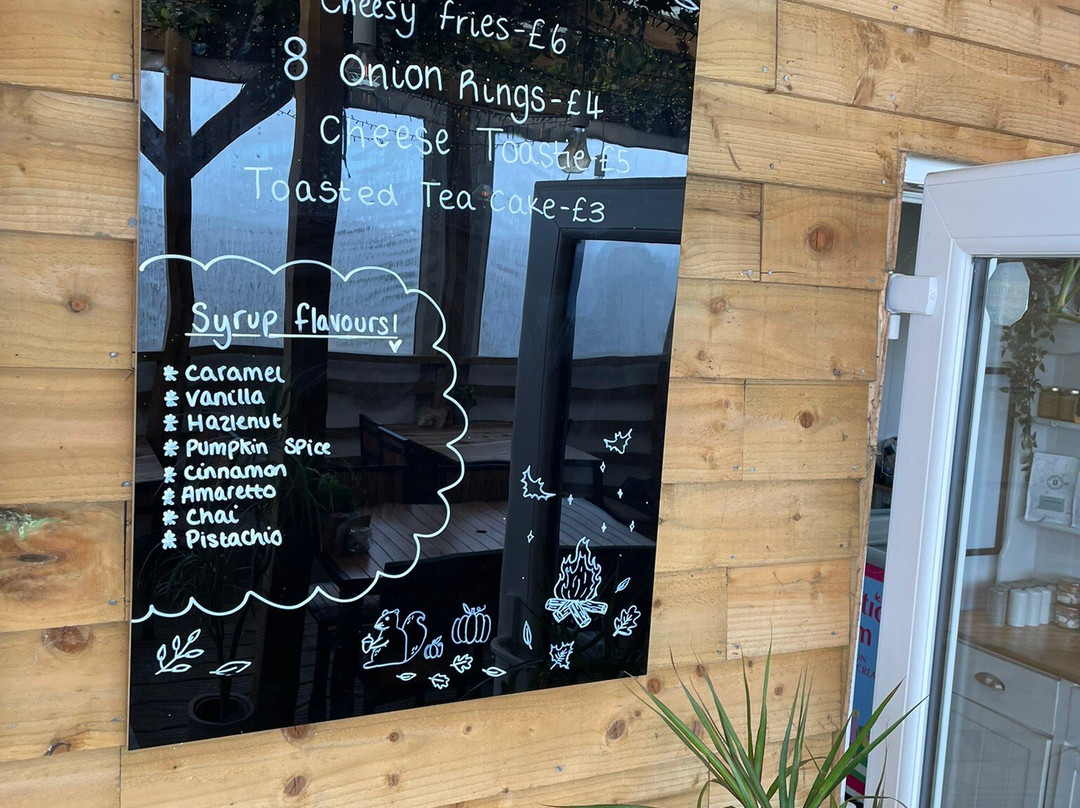 Cheesy fries-£6
8 Onion Rings-£4
Cheese Toastie-£5
Toasted Tea cake-£3
Syrup flavours!
* Caramel
* Vanilla
* Hazlenut
* Pumpkin Spice
* Cinnamon
* Amaretto
* Chai
* Pistachio